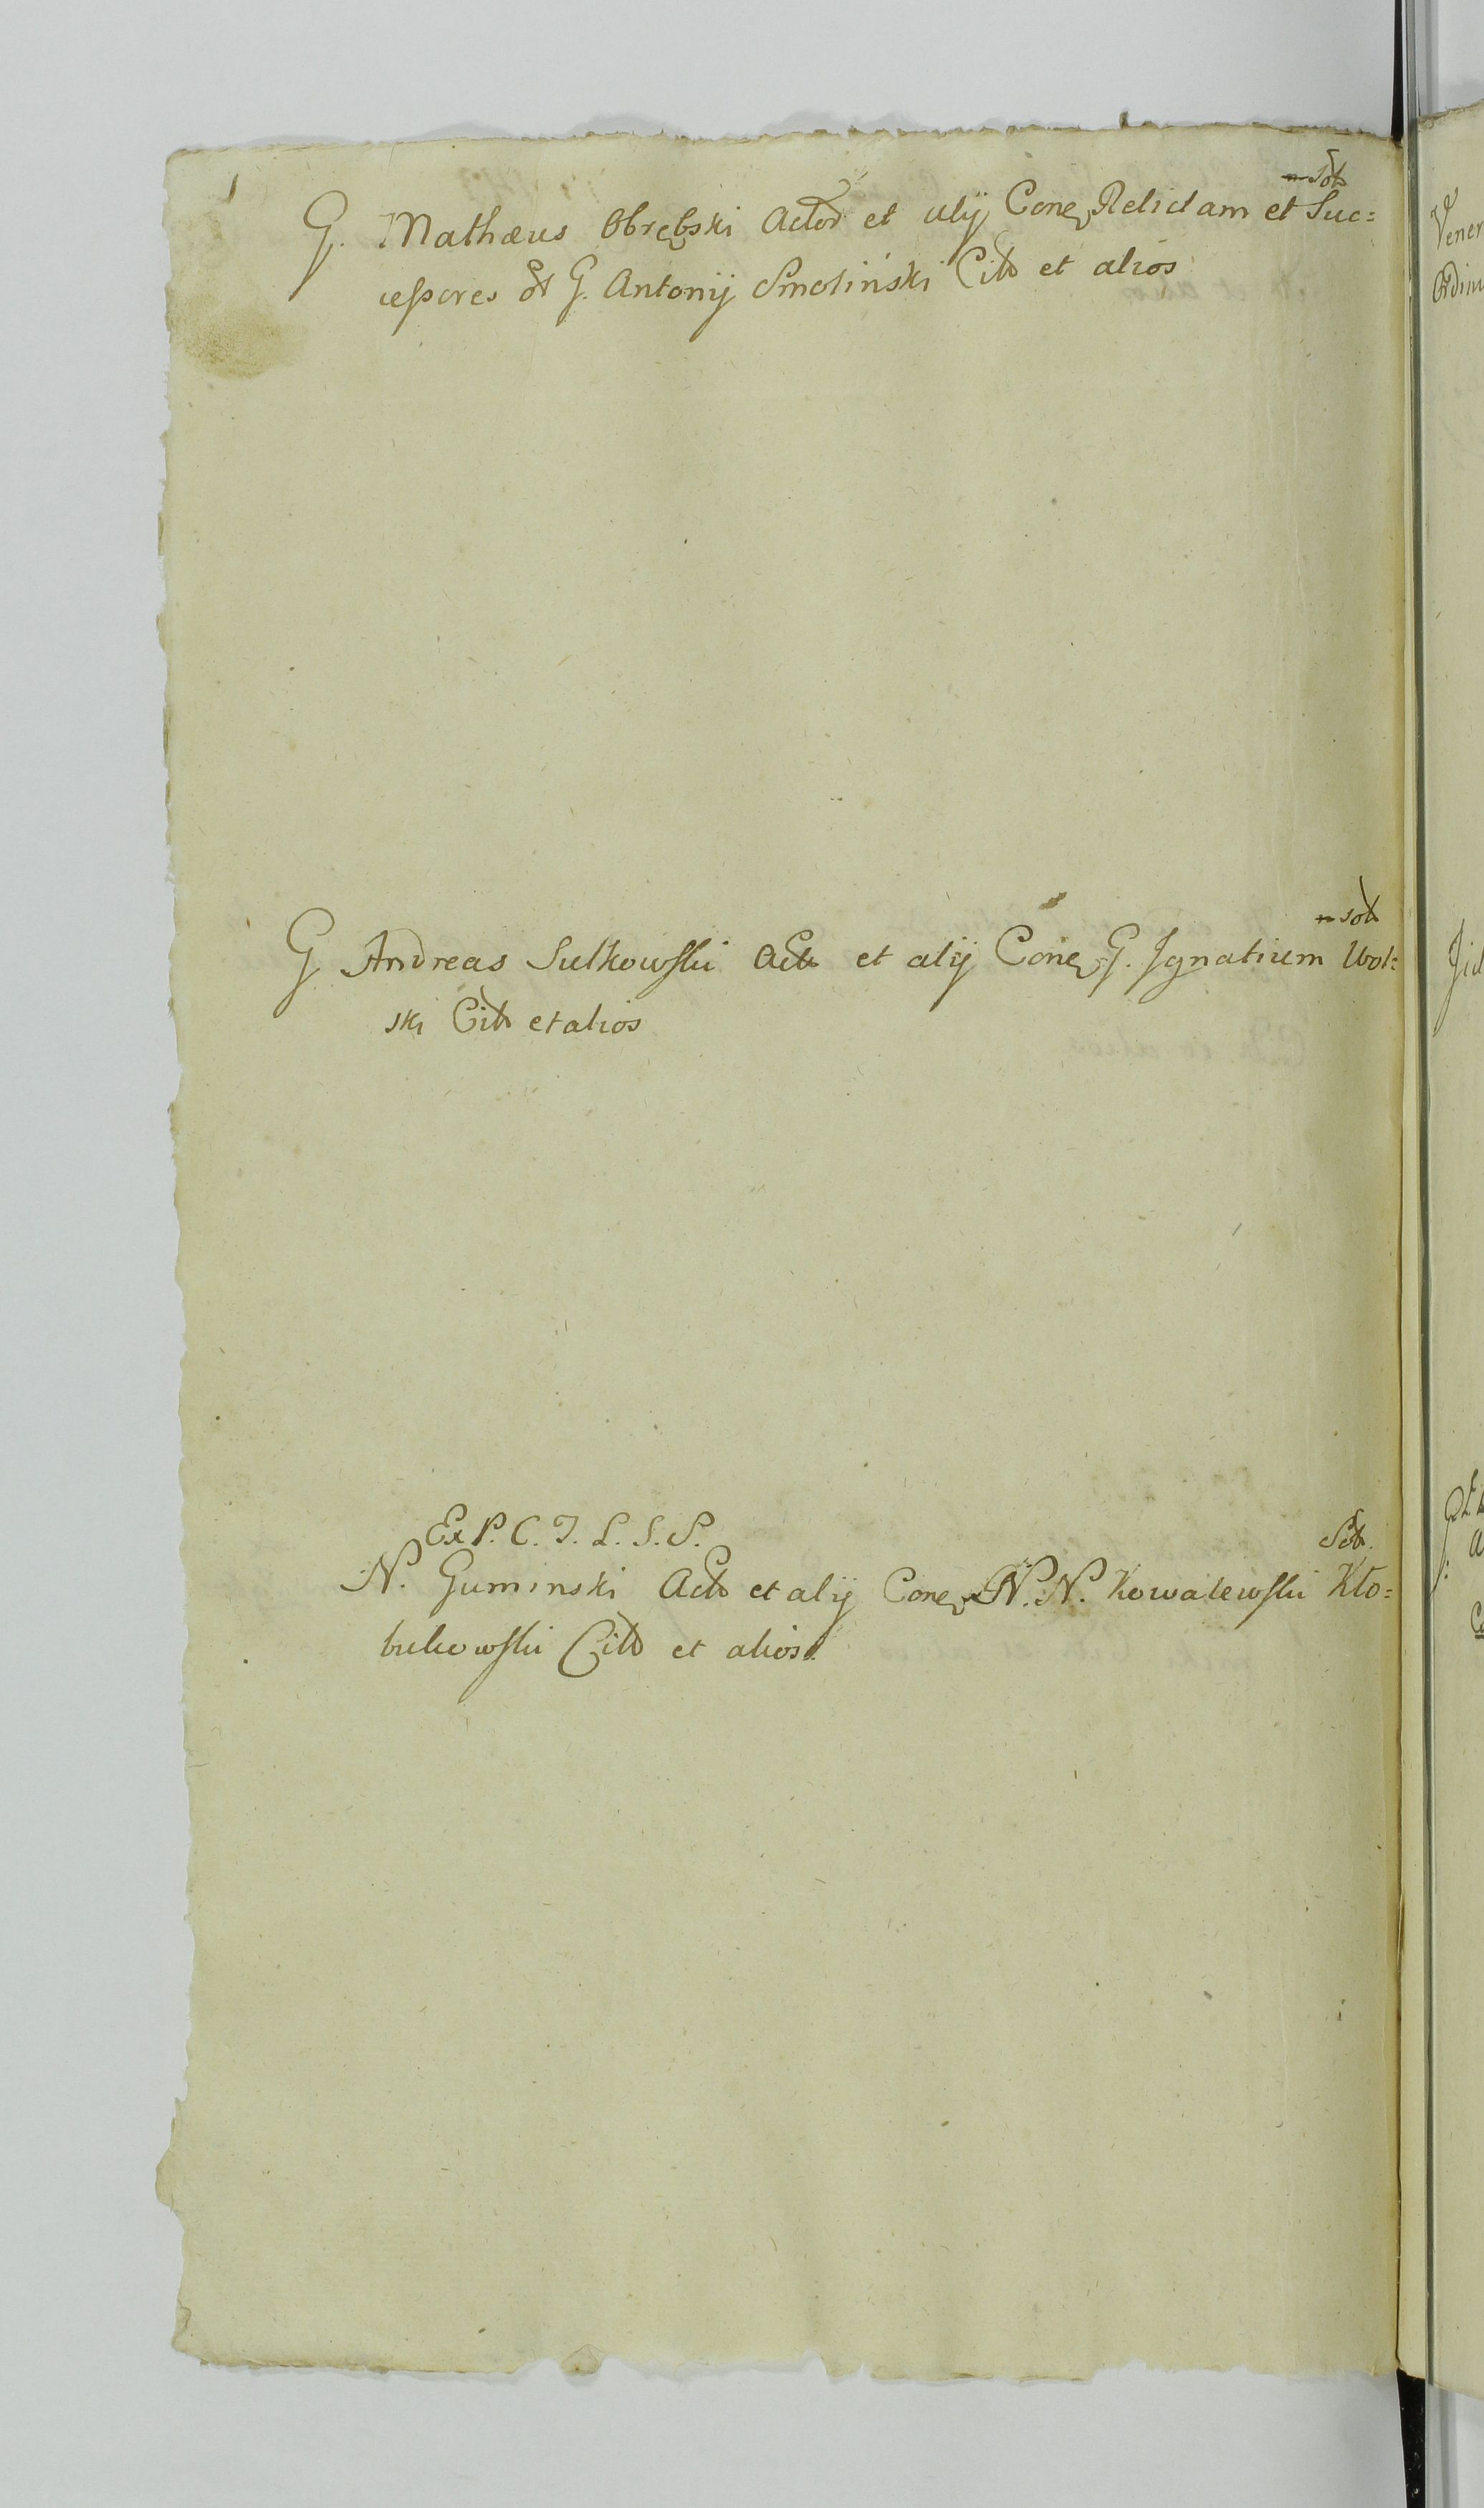 sol
G. Mathæus Obrębski Actor et alij Conq Relictam et Suc=
cessores G. Antonij Smoliński Citt et alios
sol
G Andreas Sulkowski Act et alij Conq G. Ignatium Wol=
ski Citt et alios
Ex P. C. T. L. S. S.
N. Guminski Act et alij Conq N. N. Kowalewski Kło=
bukowski Citt et alios